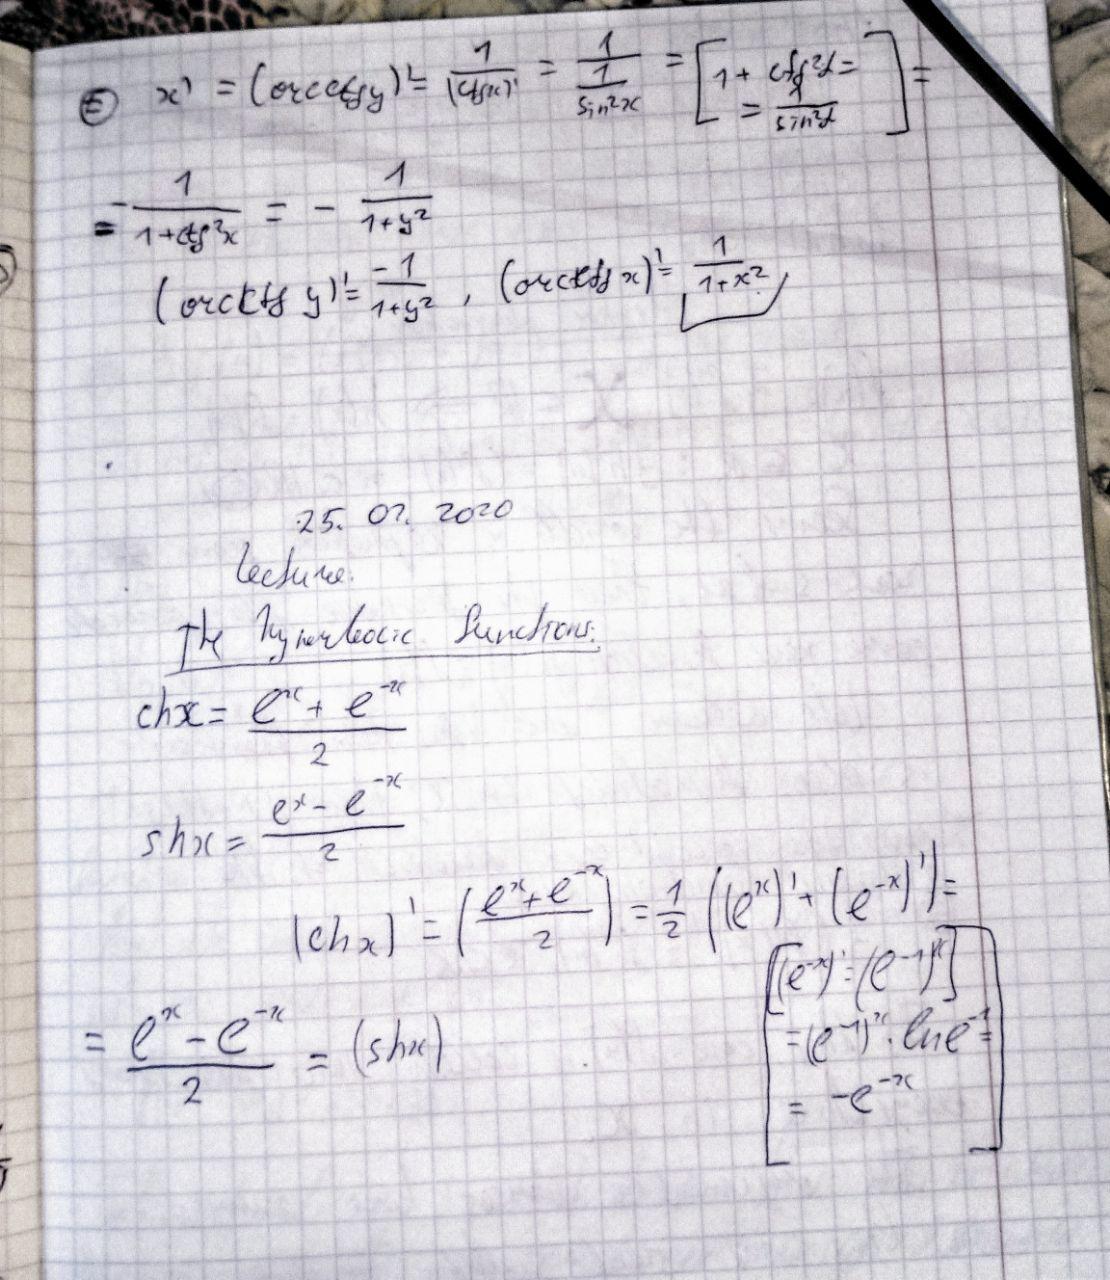 ② x' = (arcctg y)' = 1/(ctg x)' = 1/(1/sin²x) = [1 + ctg²α = 1/sin²α] =
= -1/(1+ctg²x) = - 1/(1+y²)
(arcctg y)' = -1/(1+y²), (arcctg x)' = 1/(1+x²)
25. 02. 2020
Lecture.
The hyperbolic functions.
chx = (e^x + e^-x)/2
shx = (e^x - e^-x)/2
(chx)' = ((e^x + e^-x)/2) = 1/2 ((e^x)' + (e^-x)') =
[(e^-x)' = (e^-1)^x]
= (e^-1)^x · ln e^-1 =
= (e^x - e^-x)/2 = (shx)
= -e^-x